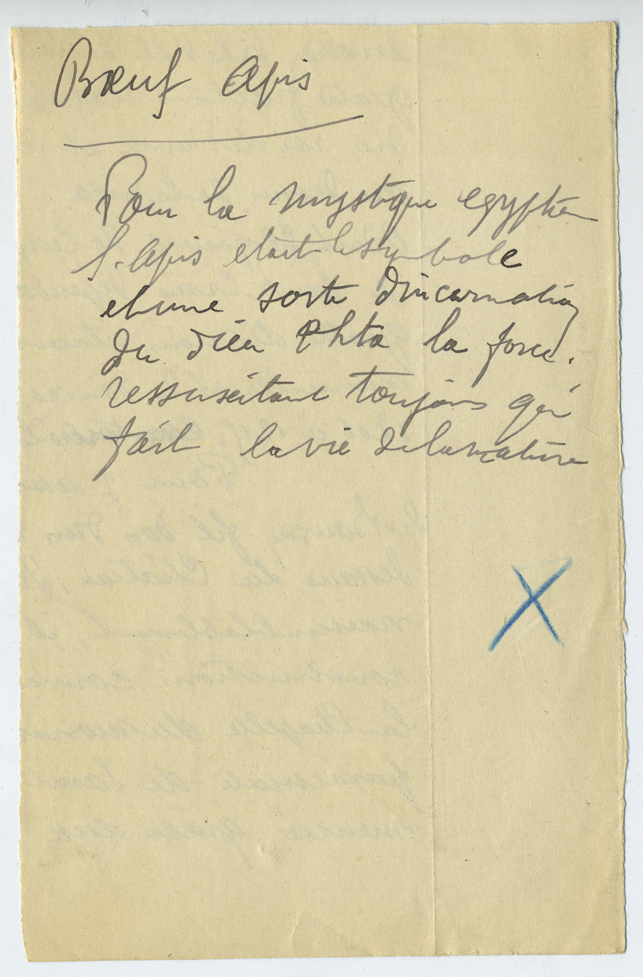 Bœuf Apis
Pour la mystique egyptien
l'Apis etait le symbole
et une sorte d'incarnation
du dieu Phta la force
ressuscitant toujours qui
fait la vie de la nature